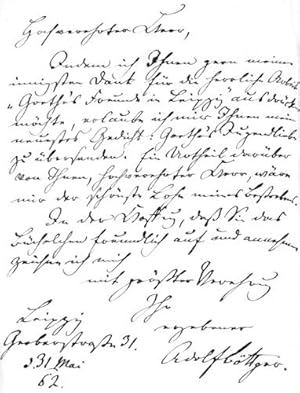 Hochverehrter Herr,
Indem ich Ihnen gern meinen
innigsten Dank für die herrliche Arbeit
„Goethe's Freunde in Leipzig" ausdrücken
möchte, erlaube ich mir Ihnen mein
neuestes Gedicht: Goethe's Jugendliebe
zu übersenden. Ein Urtheil darüber
von Ihnen, hochverehrter Herr, wäre
mir der schönste Lohn meines Bestrebens.
In der Hoffnung, daß Sie das
Büchelchen freundlich auf und annehmen
zeichne ich mich
mit größter Verehrung
Ihr
ergebener
Adolf Böttger.
Leipzig
Gerberstraße 31.
d. 31 Mai
62.